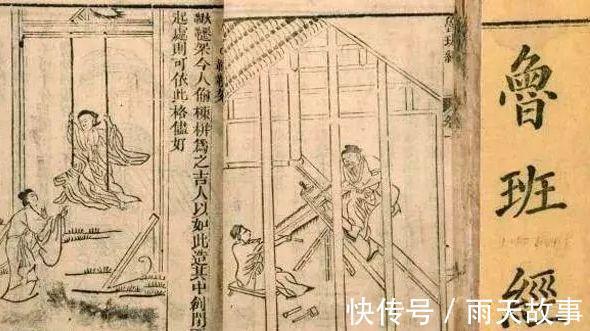 魯班經
鞦韆架今人偷棟栟為之吉人以如此造其中創閒
起處則可依此格儘好
快传号 / 雨天故事